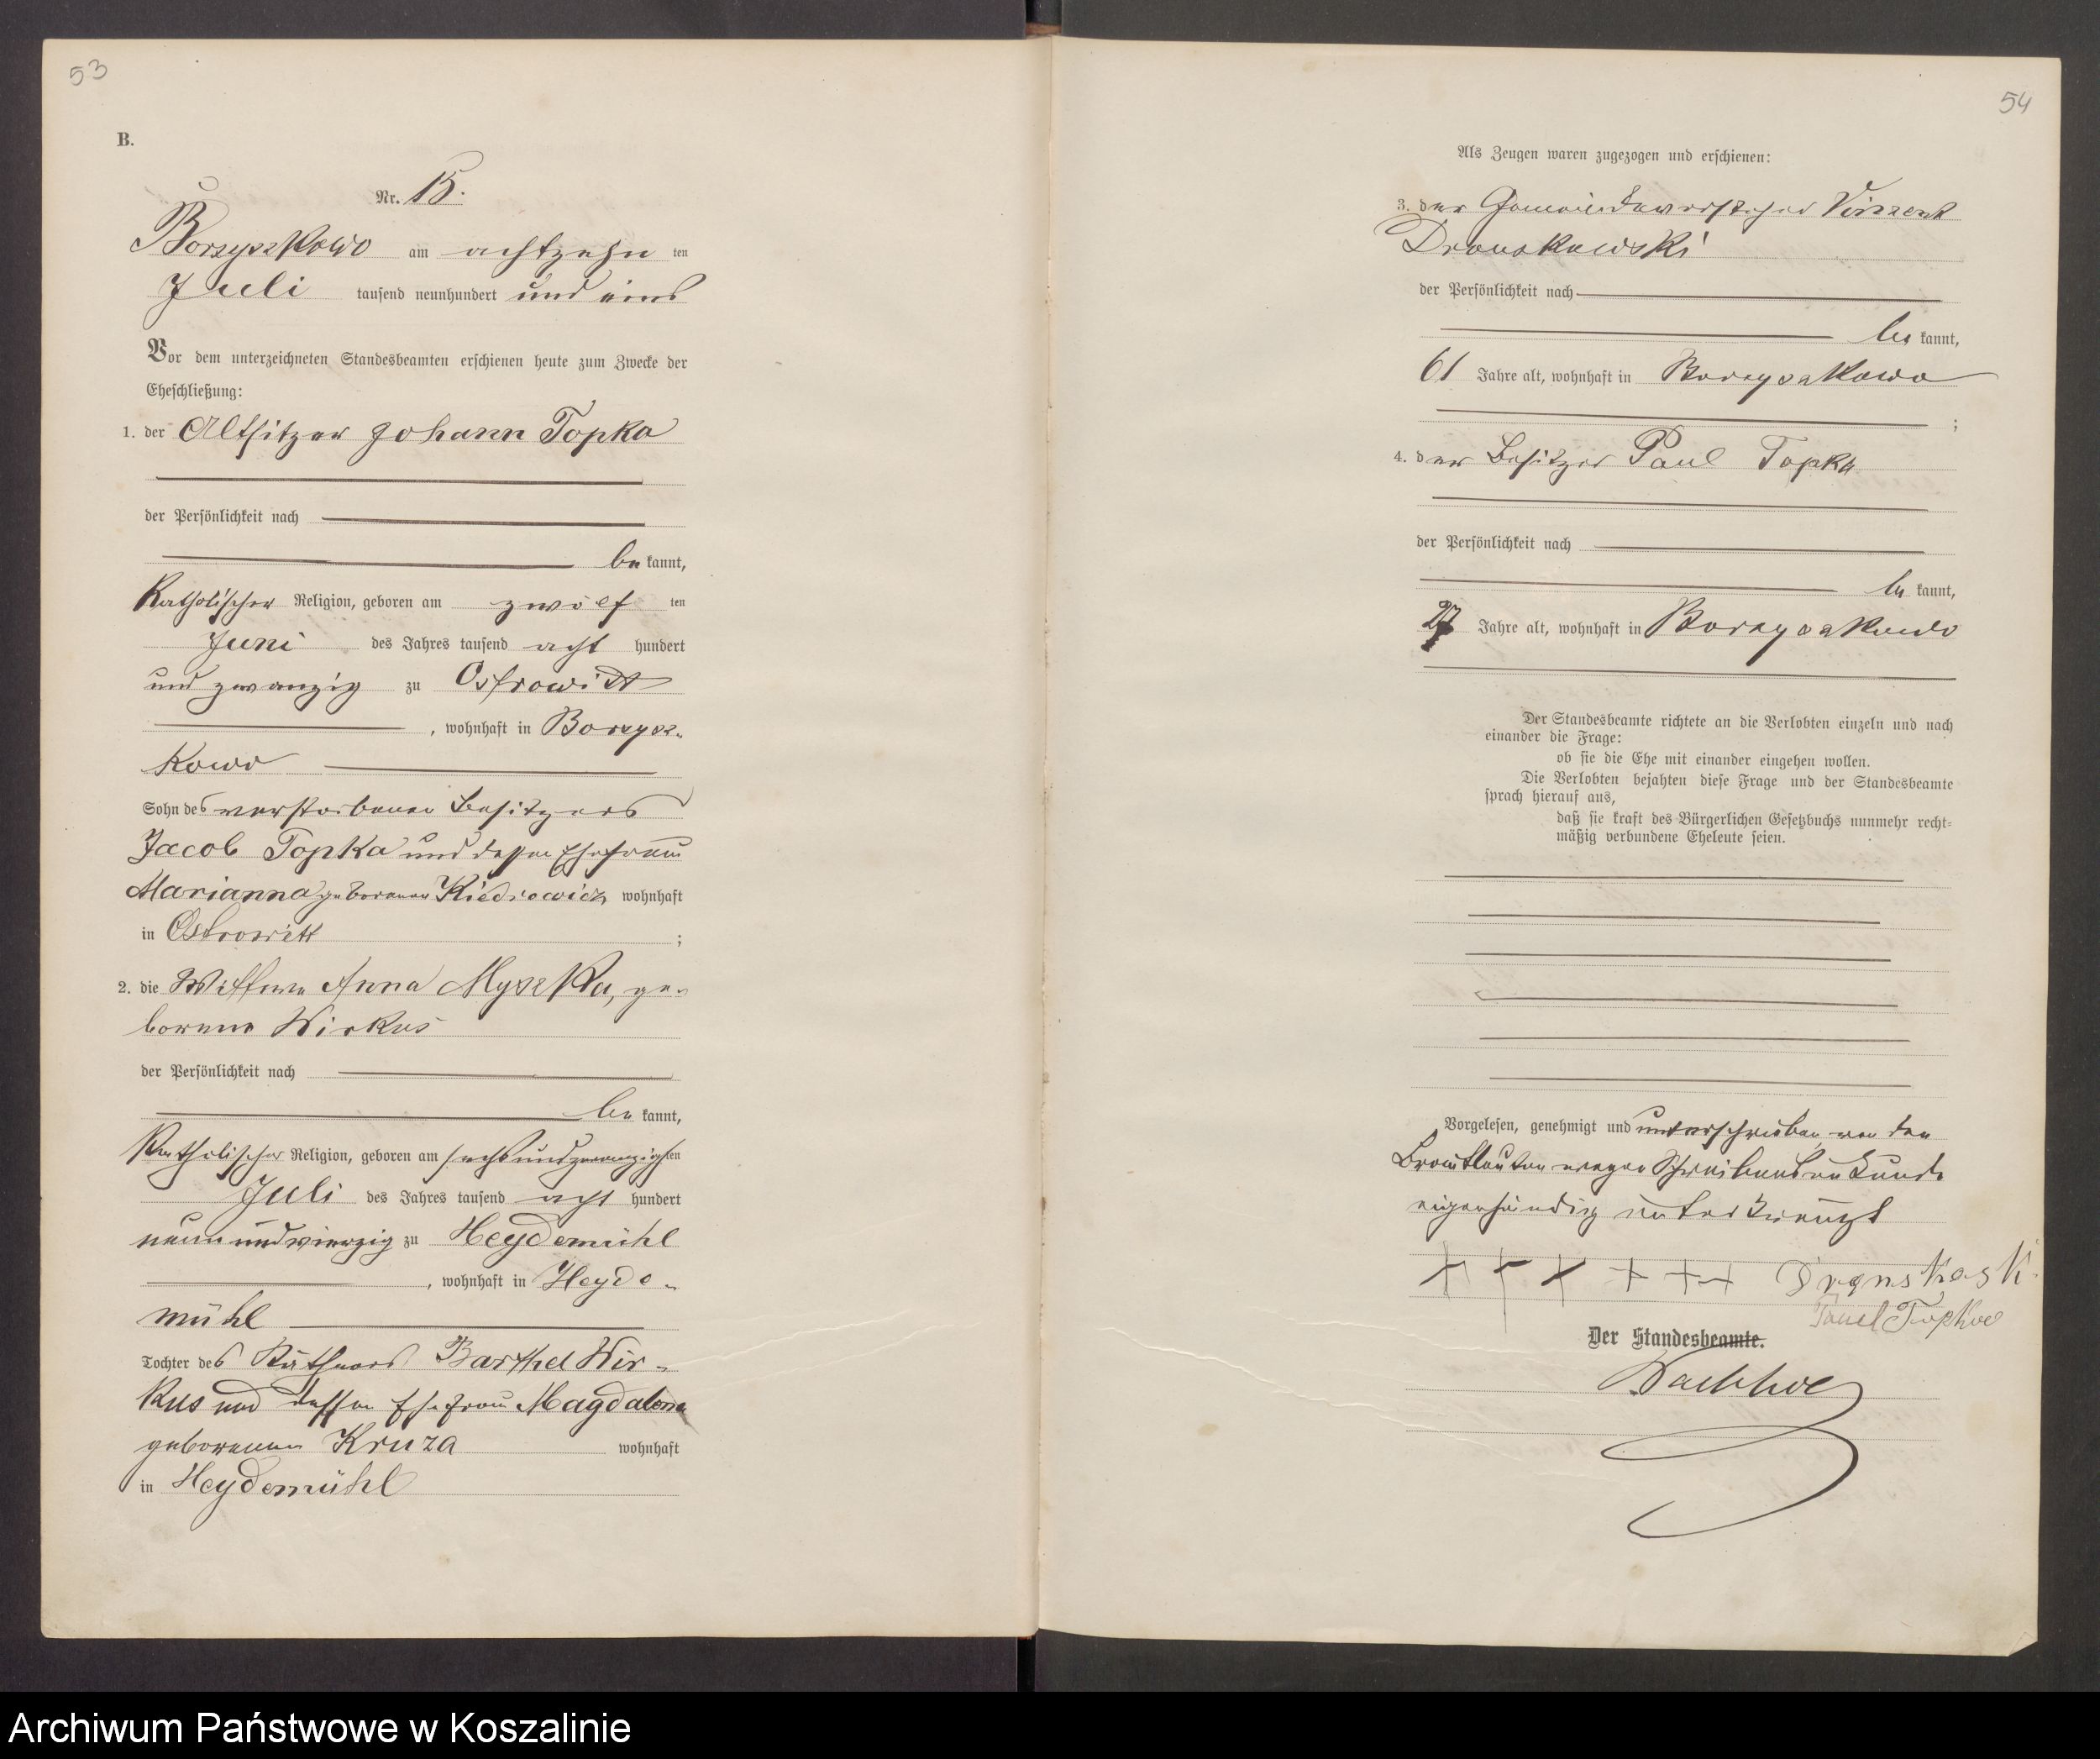 53
B.
Nr. 15.
Borzyszkowo am achtzehn ten
Juli tausend neunhundert und eins
Vor dem unterzeichneten Standesbeamten erschienen heute zum Zwecke der
Eheschließung:
1. der Altsitzer Johann Topka
der Persönlichkeit nach
be kannt,
Katholischer Religion, geboren am zwölf ten
Juni des Jahres tausend acht hundert
und zwanzig zu Ostrowitt
, wohnhaft in Borzysz-
kowo
Sohn des verstorbenen Besitzers
Jacob Topka und dessen Ehefrau
Marianna geborenen Kiedrowicz wohnhaft
in Ostrowitt ;
2. die Wittwe Anna Myszka, ge-
borene Wirkus
der Persönlichkeit nach
be kannt,
Katholischer Religion, geboren am sechsundzwanzigsten
Juli des Jahres tausend acht hundert
neunundvierzig zu Heydemühl
, wohnhaft in Heyde-
mühl
Tochter des Käthners Barthel Wir-
kus und dessen Ehefrau Magdalena
geborenen Kruza wohnhaft
in Heydemühl
54
Als Zeugen waren zugezogen und erschienen:
3. der Gemeindevorsteher Vinzent
Dronskowski
der Persönlichkeit nach
be kannt,
61 Jahre alt, wohnhaft in Borzyszkowo
;
4. der Besitzer Paul Topka
der Persönlichkeit nach
be kannt,
27 Jahre alt, wohnhaft in Borzyszkowo
Der Standesbeamte richtete an die Verlobten einzeln und nach
einander die Frage:
ob sie die Ehe mit einander eingehen wollen.
Die Verlobten bejahten diese Frage und der Standesbeamte
sprach hierauf aus,
daß sie kraft des Bürgerlichen Gesetzbuchs nunmehr recht-
mäßig verbundene Eheleute seien.
Vorgelesen, genehmigt und unterschrieben, von den
Brautleuten wegen Schreibensunkunde
eigenhändig unterkreuzt
+ + + + + + Dronskoski
Paul Topka
Der Standesbeamte.
Archiwum Państwowe w Koszalinie